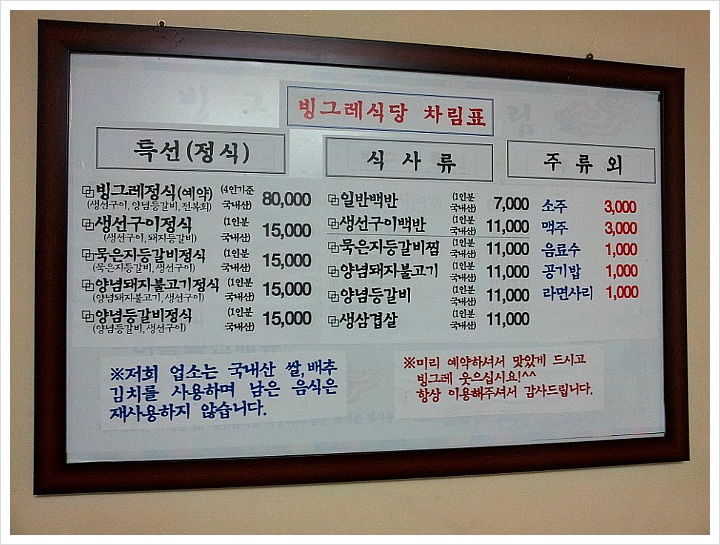 빙그레식당 차림표
특선(정식)
빙그레정식(예약) (4인기준 국내산) 80,000
(생선구이, 양념등갈비, 전복회)
생선구이정식 (1인분 국내산) 15,000
(생선구이, 돼지등갈비)
묵은지등갈비정식 (1인분 국내산) 15,000
(묵은지등갈비, 생선구이)
양념돼지불고기정식 (1인분 국내산) 15,000
(양념돼지불고기, 생선구이)
양념등갈비정식 (1인분 국내산) 15,000
(양념등갈비, 생선구이)
식사류
일반백반 (1인분 국내산) 7,000
생선구이백반 (1인분 국내산) 11,000
묵은지등갈비찜 (1인분 국내산) 11,000
양념돼지불고기 (1인분 국내산) 11,000
양념등갈비 (1인분 국내산) 11,000
생삼겹살 (1인분 국내산) 11,000
주류외
소주 3,000
맥주 3,000
음료수 1,000
공기밥 1,000
라면사리 1,000
※저희 업소는 국내산 쌀,배추
김치를 사용하며 남은 음식은
재사용하지 않습니다.
※미리 예약하셔서 맛있게 드시고
빙그레 웃으십시요!^^
항상 이용해주셔서 감사드립니다.